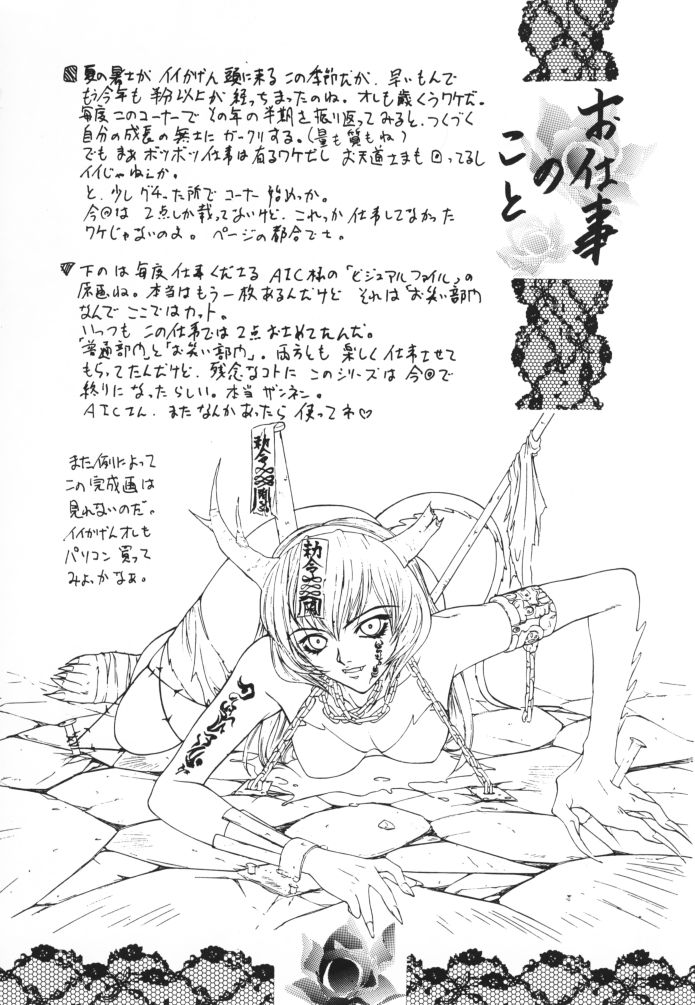 お仕事
の
こと
夏の暑さが イイかげん 頭に来る この季節だが、早いもんで
もう今年も 半分以上が 経っちまったのね。オレも歳くうワケだ。
毎度 このコーナーで その年の半期を振り返ってみると、つくづく
自分の成長の無さに ガックリする。(量も質もね)
でも まあ ボツボツ仕事は有るワケだし お天道さまも 回ってるし
イイじゃねェか。
と、少しグチった所で コーナー始めっか。
今回は 2点しか載ってないけど、これっか仕事してなかった
ワケじゃないのよ。 ページの都合でさ。
下のは 毎度仕事くださる AIC様の「ビジュアルファイル」の
原画ね。本当はもう一枚あるんだけど それは「お笑い部門」
なんで ここではカット。
いつも この仕事では 2点おさめてたんだ。
「普通部門」と「お笑い部門」。両方とも 楽しく仕事させて
もらってたんだけど、残念なコトに このシリーズは 今回で
終りになったらしい。本当 ザンネン。
AICさん、またなんかあったら 使ってネ♡
また例によって
この完成画は
見れないのだ。
イイかげんオレも
パソコン買って
みよっかなぁ。
勅令
勅令